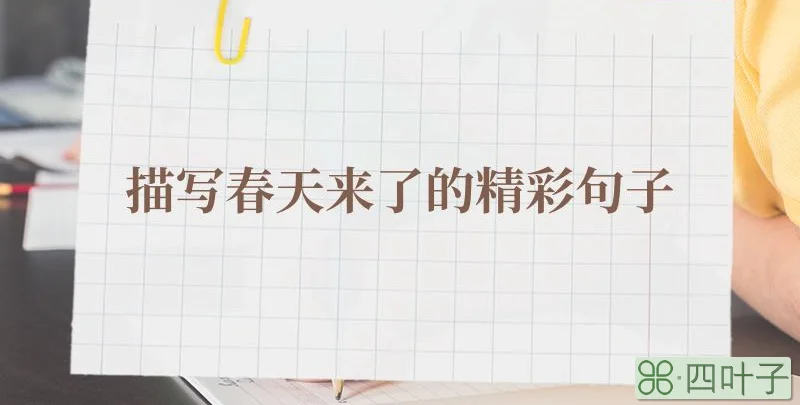 描写春天来了的精彩句子
四叶子